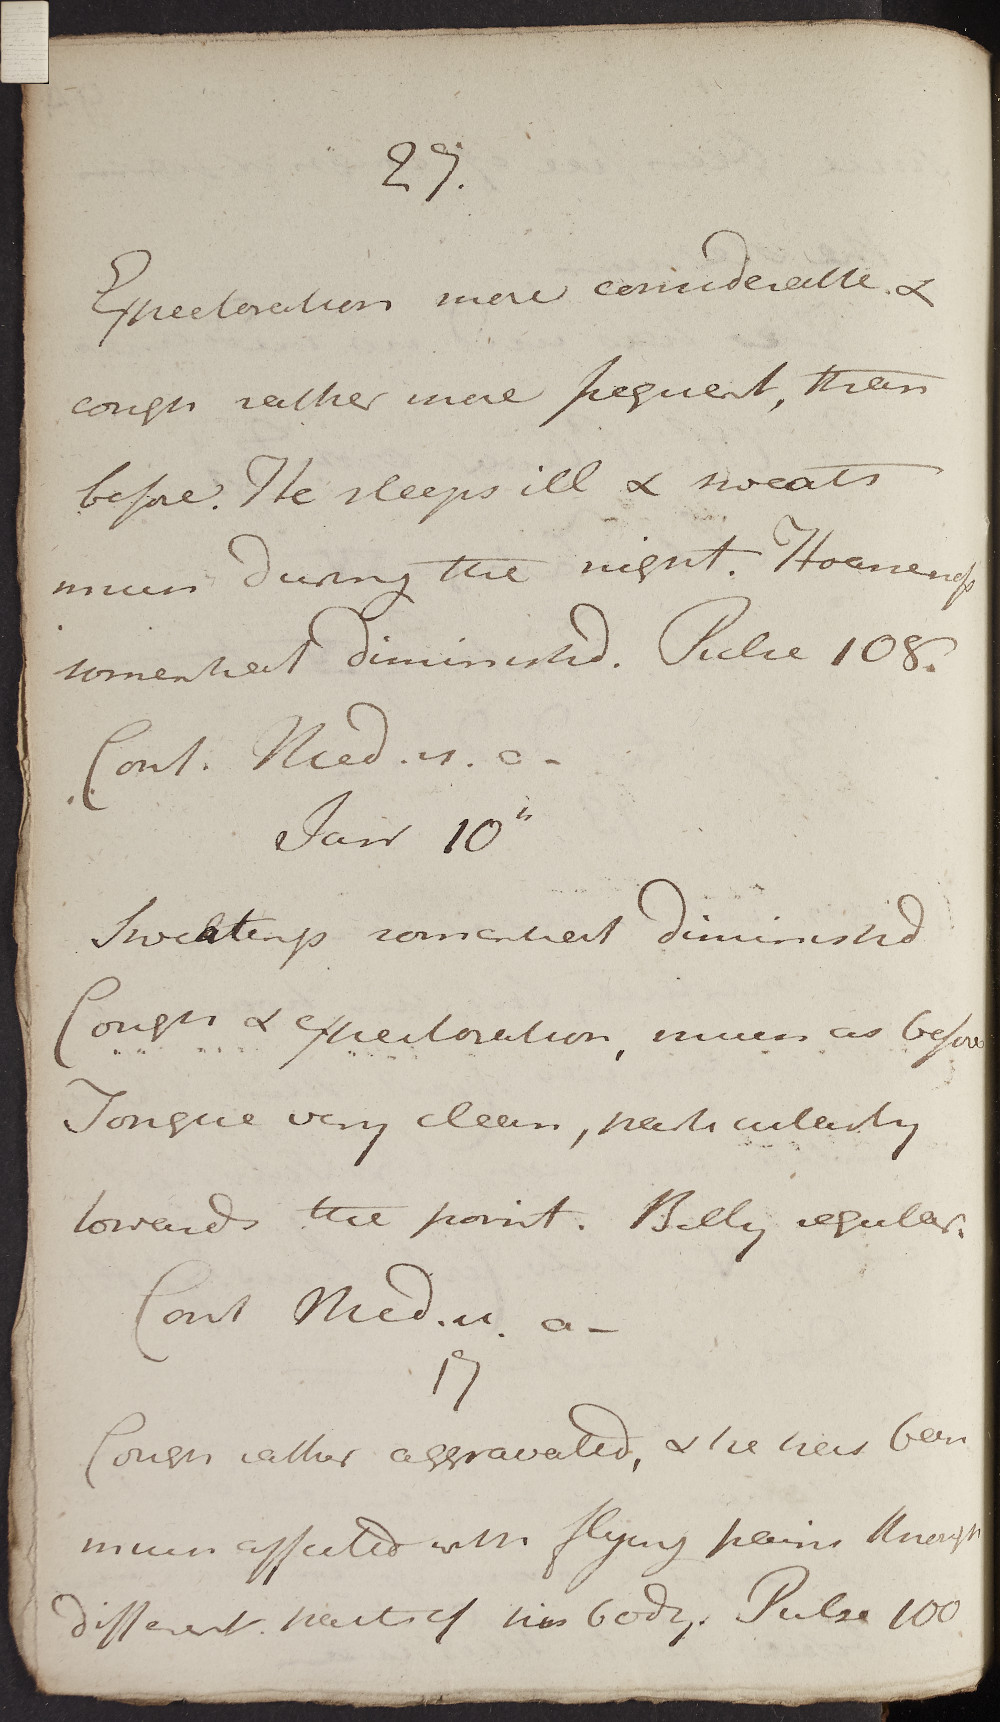 27.
Expectoration more considerable. &
cough rather more frequent, than
before. He sleeps ill & sweats
much during the night. Hoarseness
somewhat diminishd. Pulse 108.
Cont. Med. u. a -
Jany 10th
Sweatings somewhat diminishd
Cough & expectoration, much as before
Tongue very clean, particularly
towards the point. Belly regular.
Cont Med. u. a -
17
Cough rather aggravated, & he has been
much affected with flying pains through
different parts of his body. Pulse 100